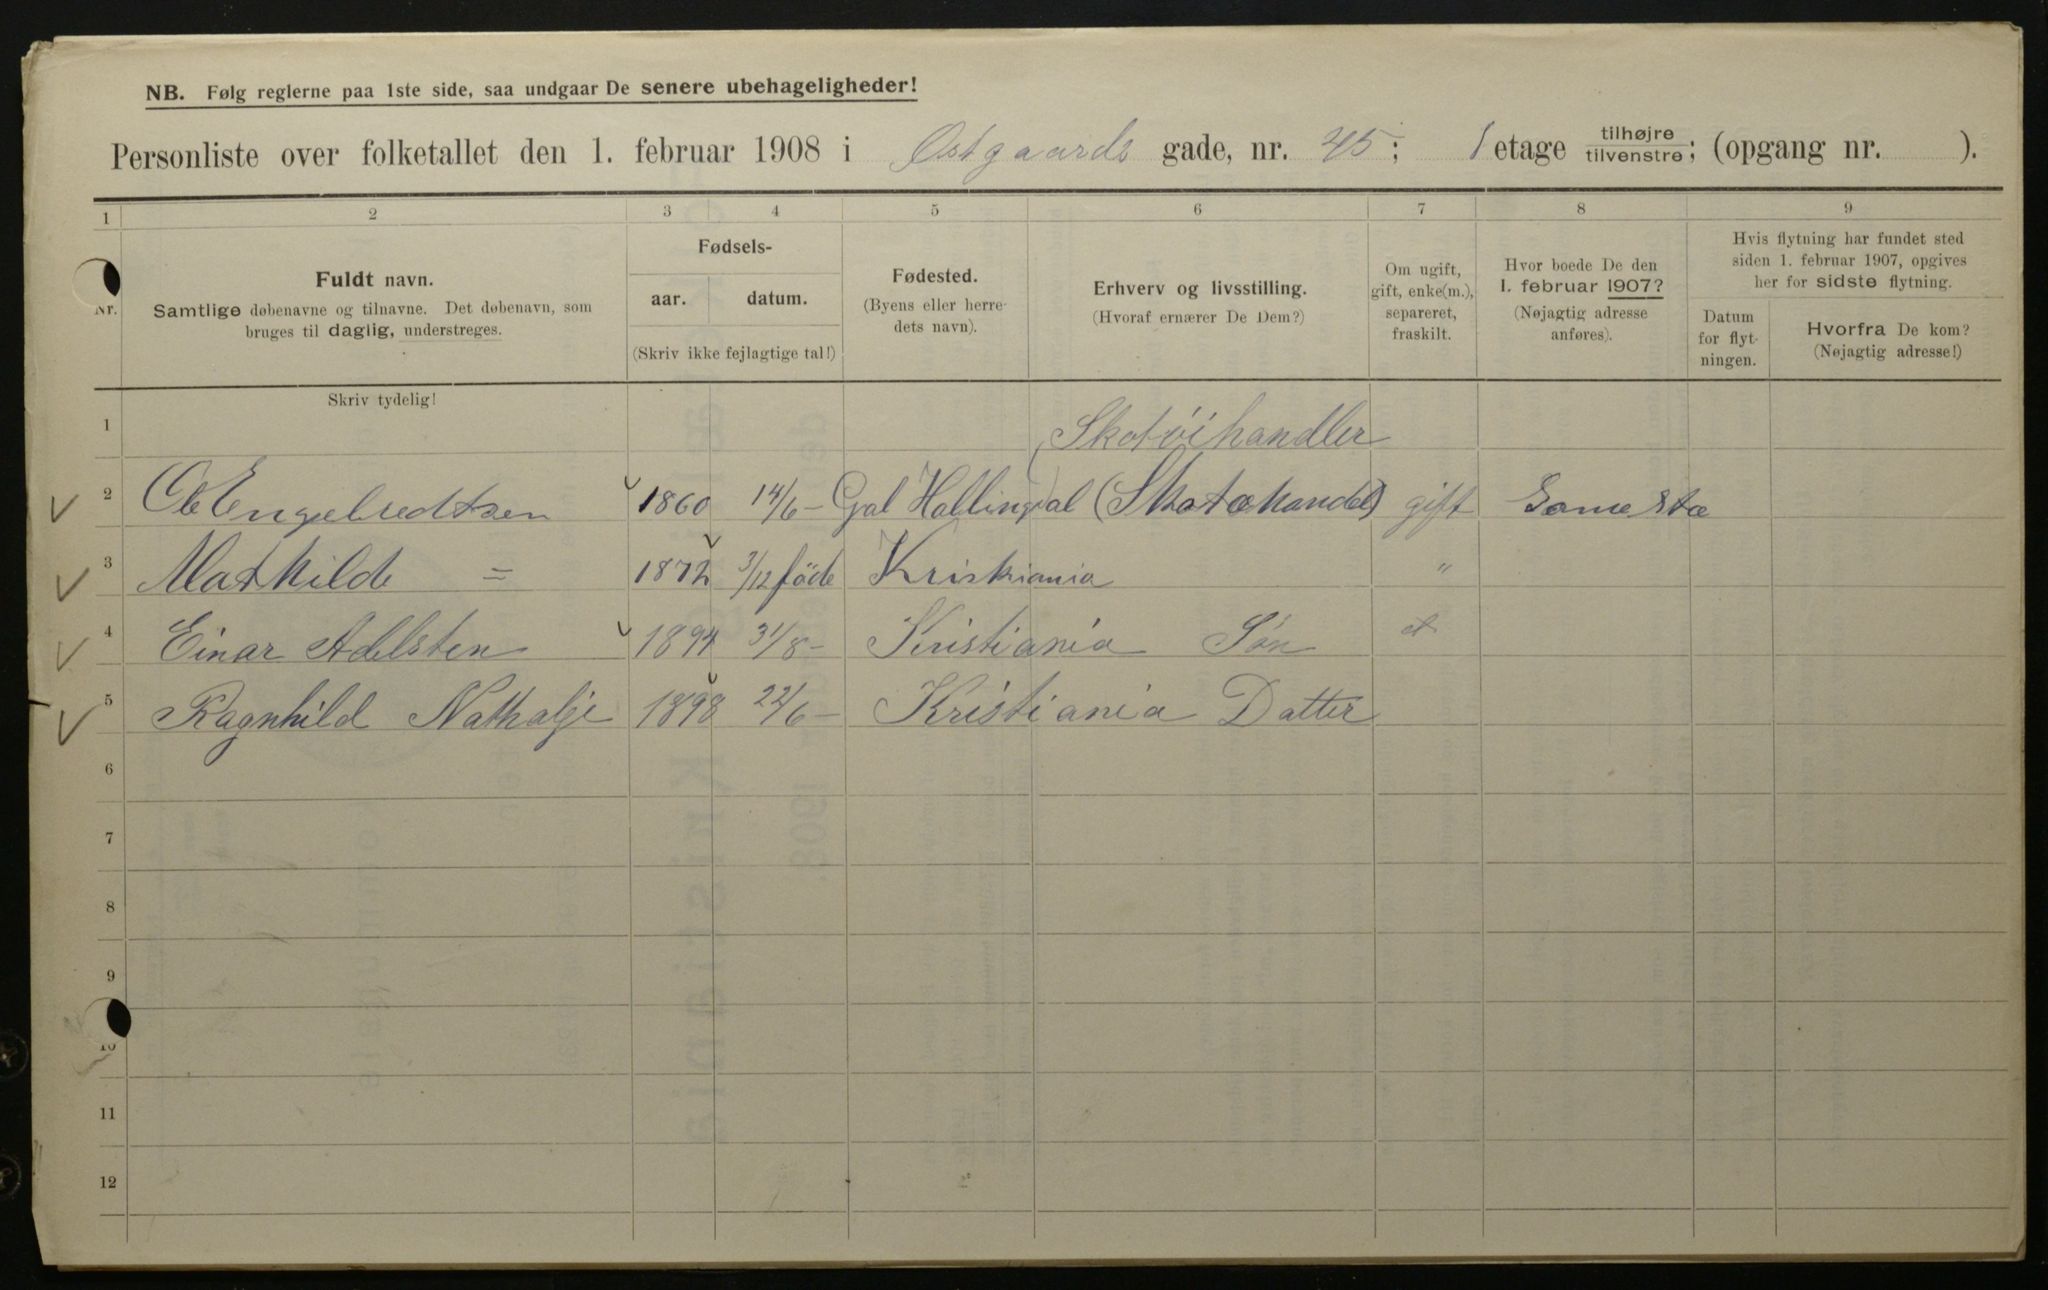 NB. Følg reglerne paa 1ste side, saa undgaar De senere ubehageligheder!
Personliste over folketallet den 1. februar 1908 i Østgaards gade, nr. 45; 1 etage tilhøjre/tilvenstre; (opgang nr. ).
1 2 3 4 5 6 7 8 9
Nr.
Fuldt navn.
Samtlige døbenavne og tilnavne. Det døbenavn, som
bruges til daglig, understreges.
Skriv tydelig!
Fødsels-
aar. datum.
(Skriv ikke fejlagtige tal!)
Fødested.
(Byens eller herre-
dets navn).
Erhverv og livsstilling.
(Hvoraf ernærer De Dem?)
Om ugift,
gift, enke(m.),
separeret,
fraskilt.
Hvor boede De den
1. februar 1907?
(Nøjagtig adresse
anføres).
Hvis flytning har fundet sted
siden 1. februar 1907, opgives
her for sidste flytning.
Datum
for flyt-
ningen.
Hvorfra De kom?
(Nøjagtig adresse!)
1 Skotöihandler
2 Ole Engebredtsen 1860 14/6 – Gol Hallingdal (Skotøhandel) gift Samesta
3 Mathilde = 1872 3/12 föde Kristiania "
4 Einar Adelsten 1894 31/8 – Kristiania Sön
5 Ragnhild Nathalje 1898 22/6 – Kristiania Datter
6
7
8
9
10
11
12